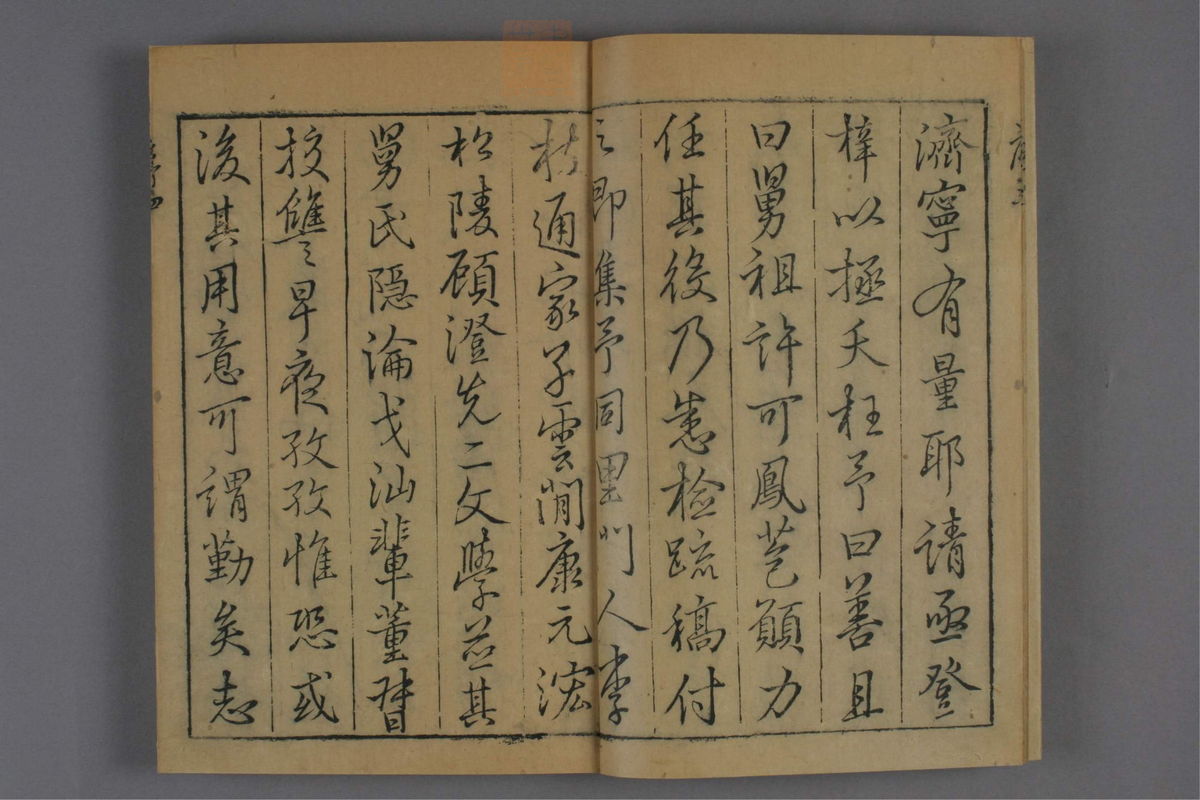 濟寧有量耶請亟登
梓以拯夭枉予曰善且
曰舅祖許可鳳苞願力
任其後乃悉檢疏稿付
之即集予同里門人李
杕通家子雲間康元浤
松陵顧澄先二文學並其
舅氏隱淪戈汕輩董督
挍讎之早夜孜孜惟恐或
後其用意可謂勤矣志